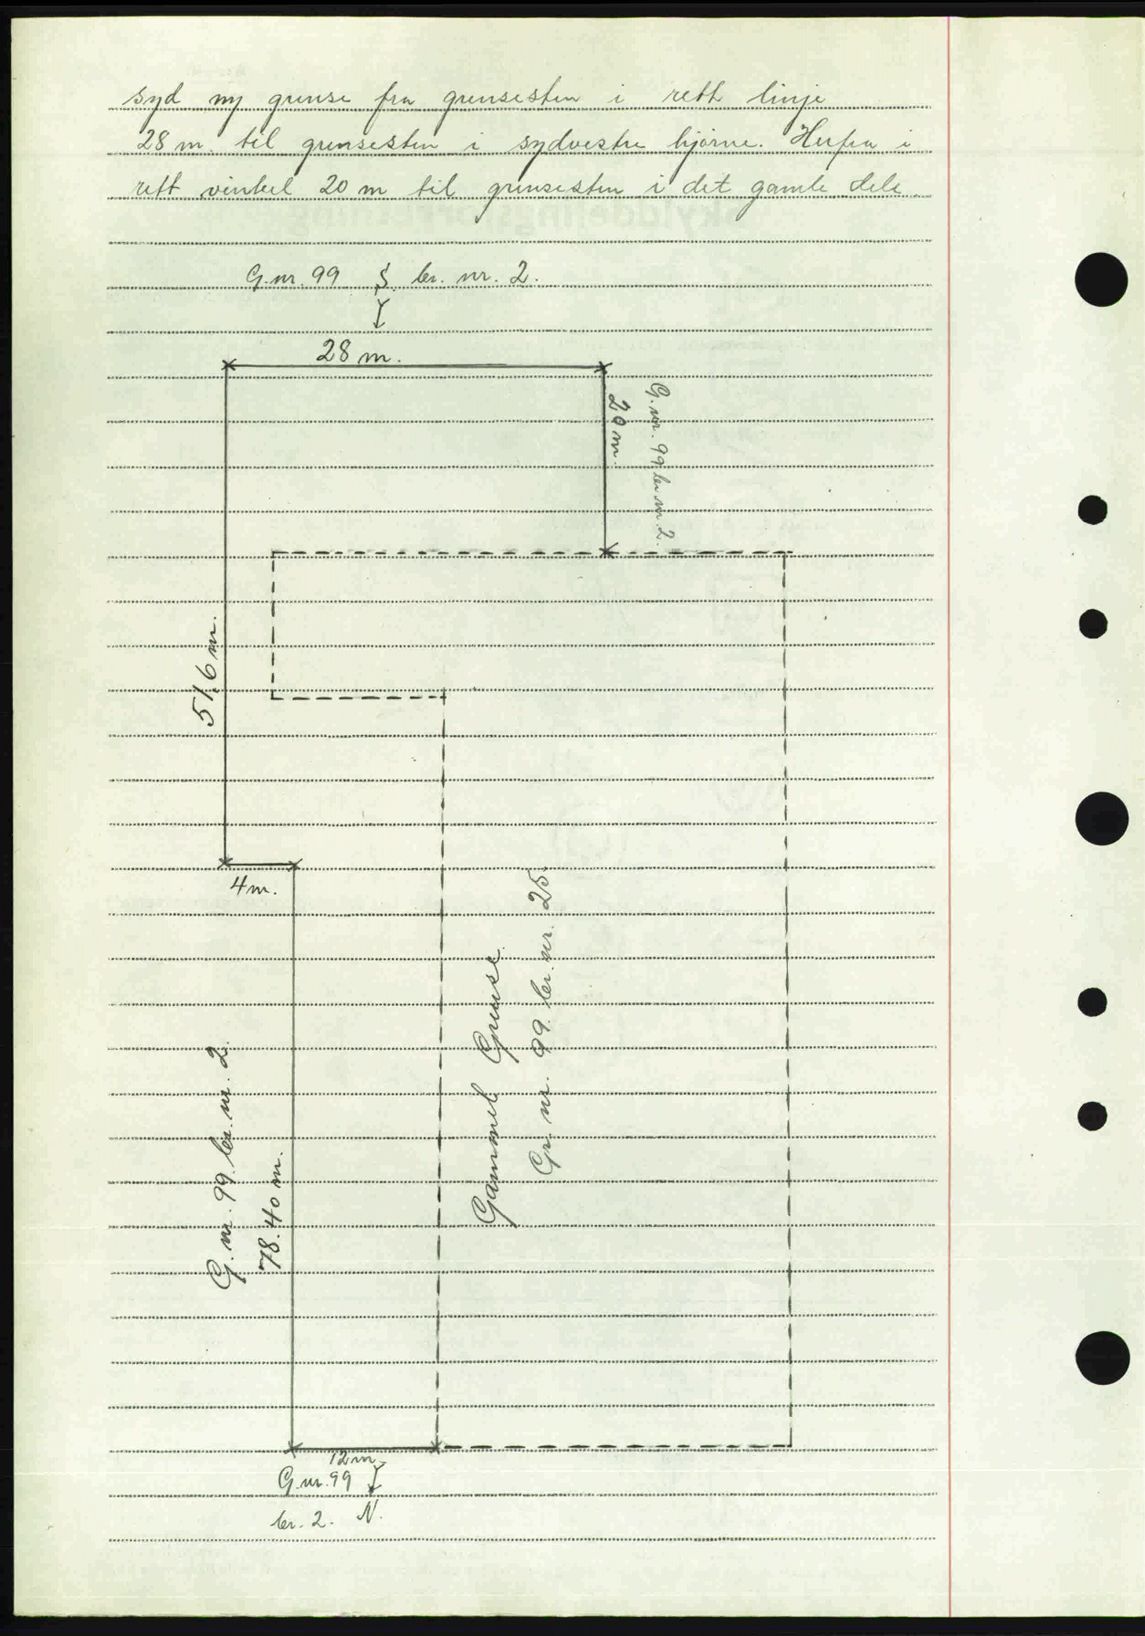 syd ny grense fra grensesten i rett linje
28 m. til grensesten i sydvestre hjørne. Herfra i
rett vinkel 20 m til grensesten i det gamle dele.
G.nr. 99 S br. nr. 2.
28 m.
20 m.
G.nr. 99 br.nr. 2.
51.6 m.
4 m.
Gammel Grense.
Gr. nr. 99. br. nr. 25.
G. nr. 99. br. nr. 2.
78.40 m.
12 m.
G.nr. 99
br. 2. N.